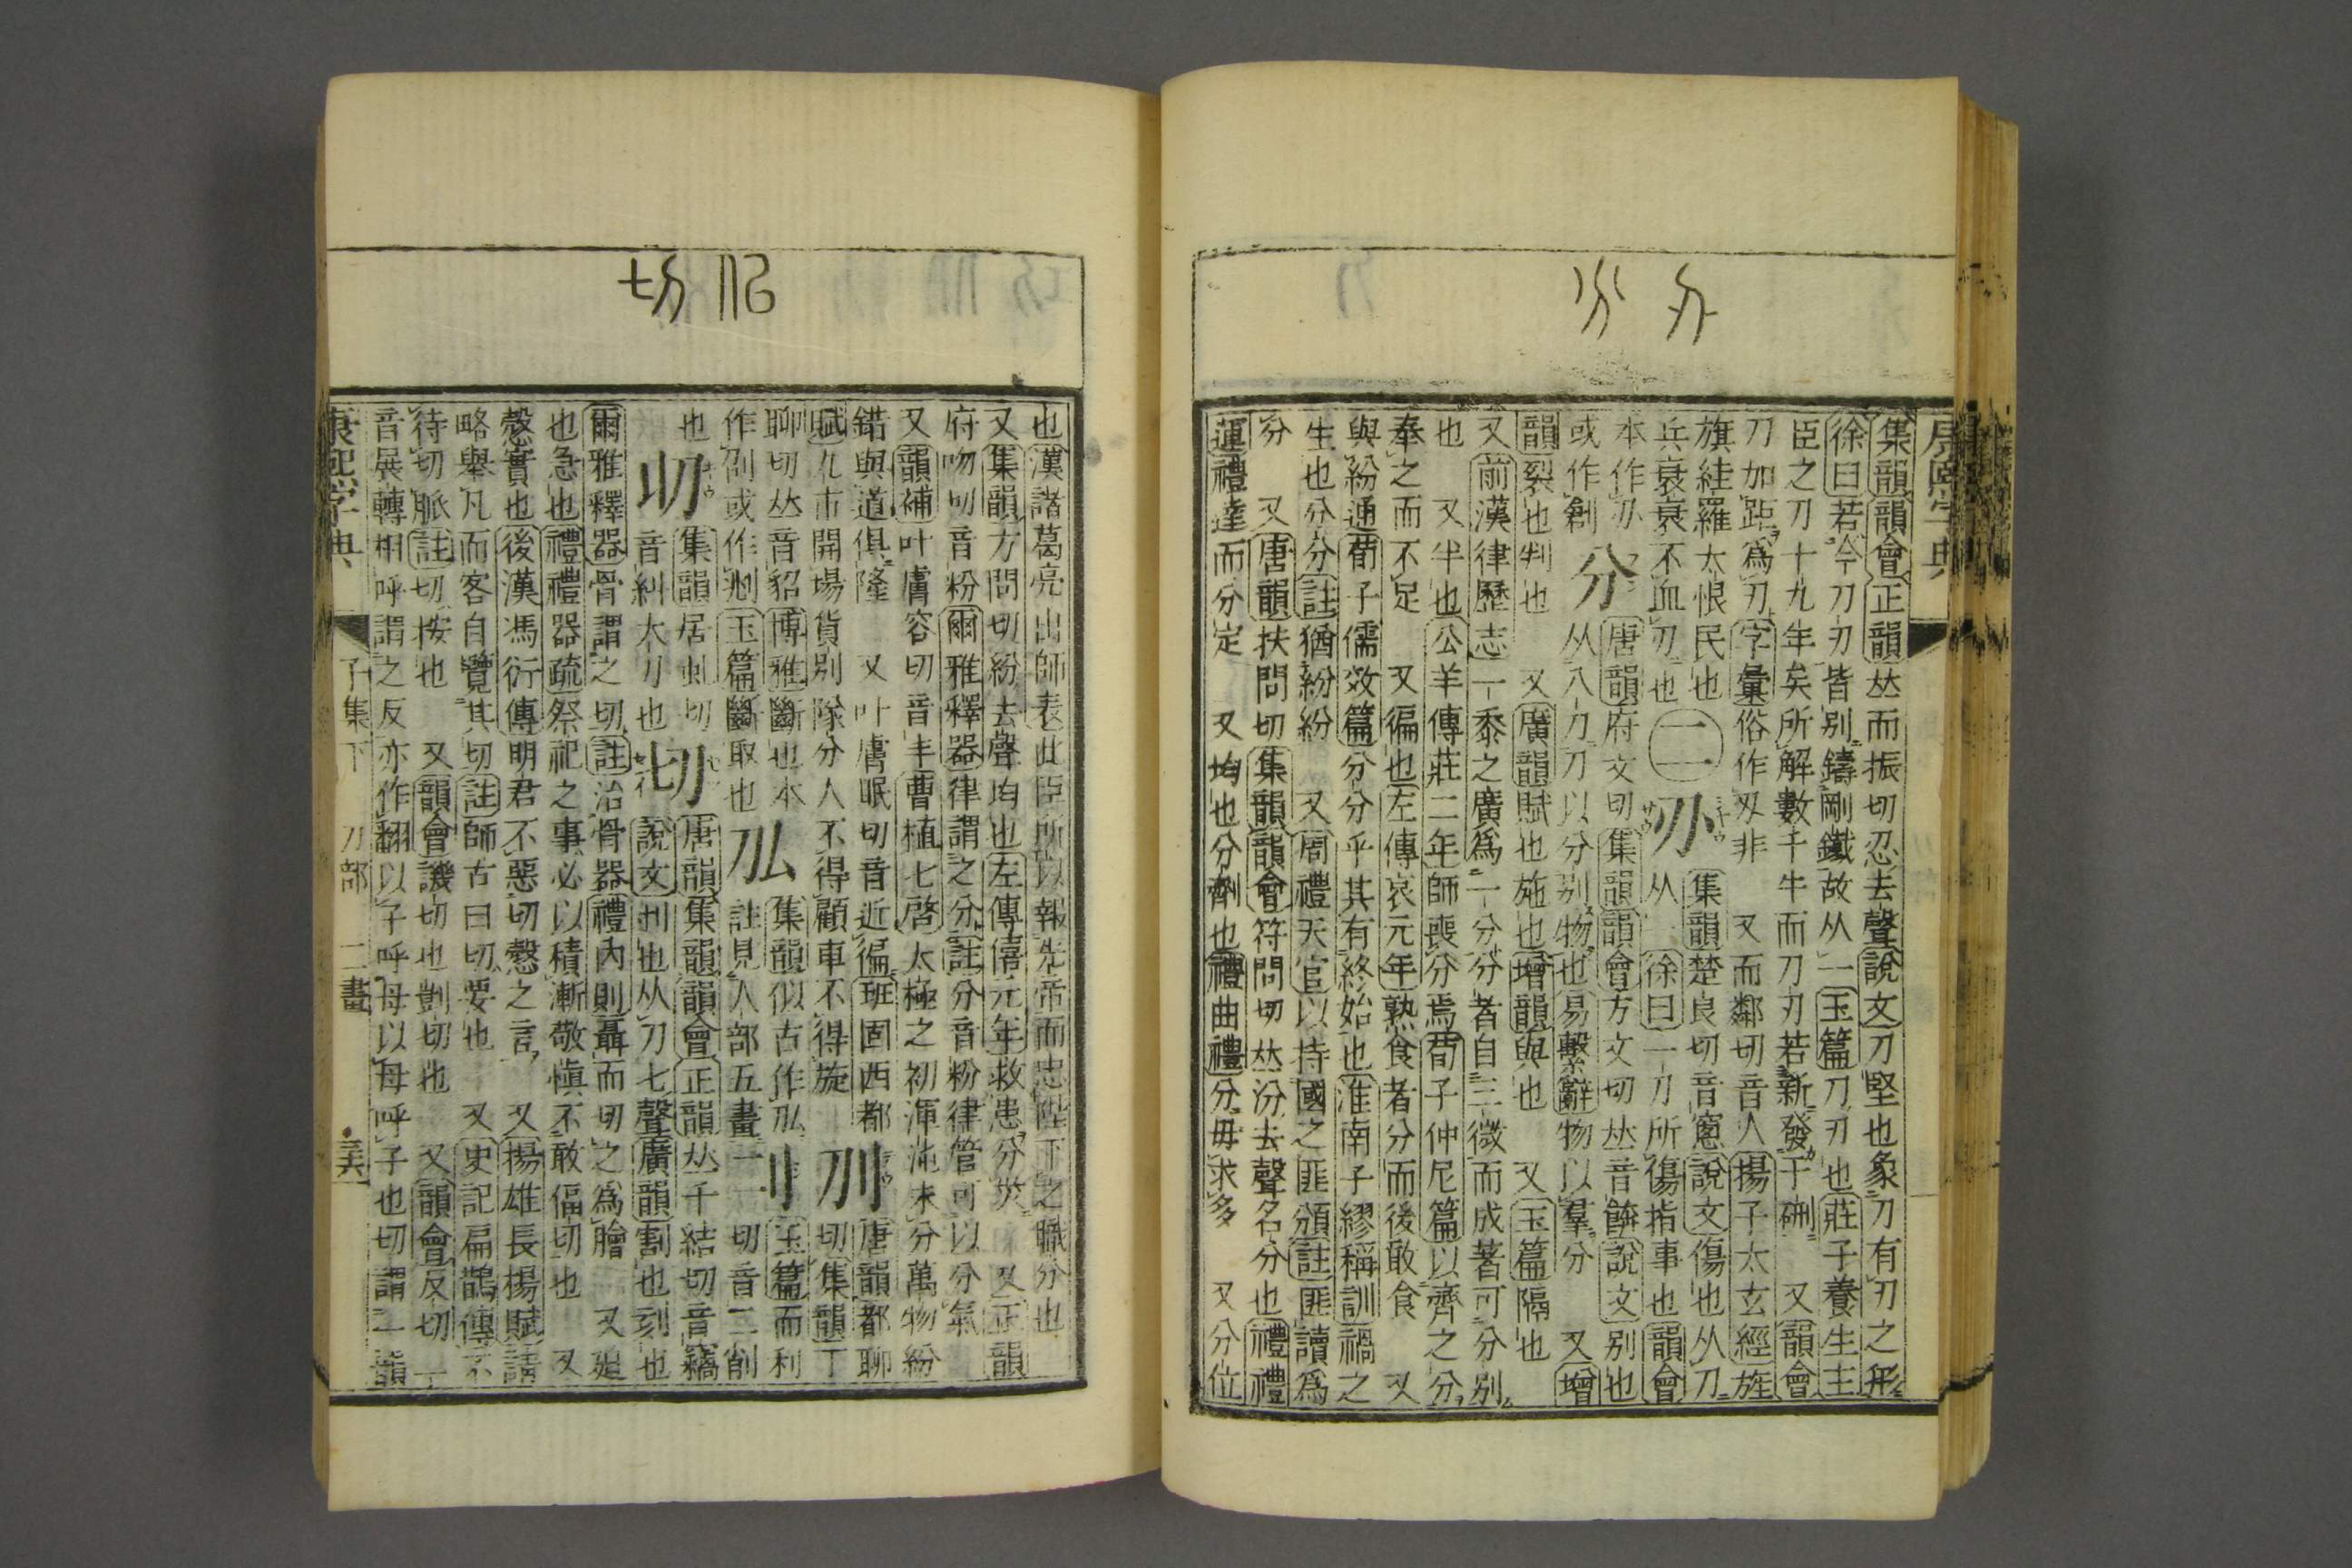 刅 分
康熙字典
集韻韻會正韻𠀤而振切忍去聲說文刀堅也象刀有刃之形
徐曰若今刀刃皆別鑄剛鐵故从一玉篇刀刃也莊子養生主
臣之刀十九年矣所解數千牛而刀刃若新發于硎 又韻會
刀加距爲刃字彙俗作刄非 又而鄰切音人揚子太玄經旌
旗絓羅大恨民也 集韻楚良切音窻說文傷也从刀
兵衰衰不血刃也 二 刅 从一 徐曰一刀所傷指事也韻會
本作刅 唐韻府文切集韻韻會方文切𠀤音餴說文別也
或作創 分 从八刀刀以分別物也易繫辭物以羣分 又增
韻裂也判也 又廣韻賦也施也增韻與也 又玉篇隔也
又前漢律歷志一黍之廣爲一分分者自三微而成著可分別
也 又半也公羊傳莊二年師喪分焉荀子仲尼篇以齊之分
奉之而不足 又徧也左傳哀元年熟食者分而後敢食 又
與紛通荀子儒效篇分分乎其有終始也淮南子繆稱訓禍之
生也分分註猶紛紛 又周禮天官以待國之匪頒註匪讀爲
分 又唐韻扶問切集韻韻會符問切𠀤汾去聲名分也禮禮
運禮達而分定 又均也分劑也禮曲禮分毋求多 又分位
切
也漢諸葛亮出師表此臣所以報先帝而忠陛下之職分也
又集韻方問切紛去聲均也左傳僖元年救患分災 又正韻
府吻切音粉爾雅釋器律謂之分註分音粉律管可以分氣
又韻補叶膚容切音丰曹植七啓太極之初渾沌未分萬物紛
錯與道俱隆 又叶膚眠切音近徧班固西都 唐韻都聊
賦九市開場貨別隧分人不得顧車不得旋 切集韻丁
聊切𠀤音貂博雅斷也本 集韻似古作 玉篇而利
作刟或作 玉篇斷取也 註見人部五畫 切音二削
也 集韻居虯切 唐韻集韻韻會正韻𠀤千結切音竊
音糾大刀也 切 說文刌也从刀七聲廣韻割也刻也
爾雅釋器骨謂之切註治骨器禮內則聶而切之爲膾 又
也急也禮禮器疏祭祀之事必以積漸敬愼不敢偪切也 又
愨實也後漢馮衍傳明君不惡切愨之言 又揚雄長揚賦請
略舉凡而客自覽其切註師古曰切要也 又史記扁鵲傳不
待切脈註切按也 又韻會譏切也剴切也 又韻會反切一
音展轉相呼謂之反亦作翻以子呼母以母呼子也切謂一韻
康熙字典 子集下 刀部 二畫